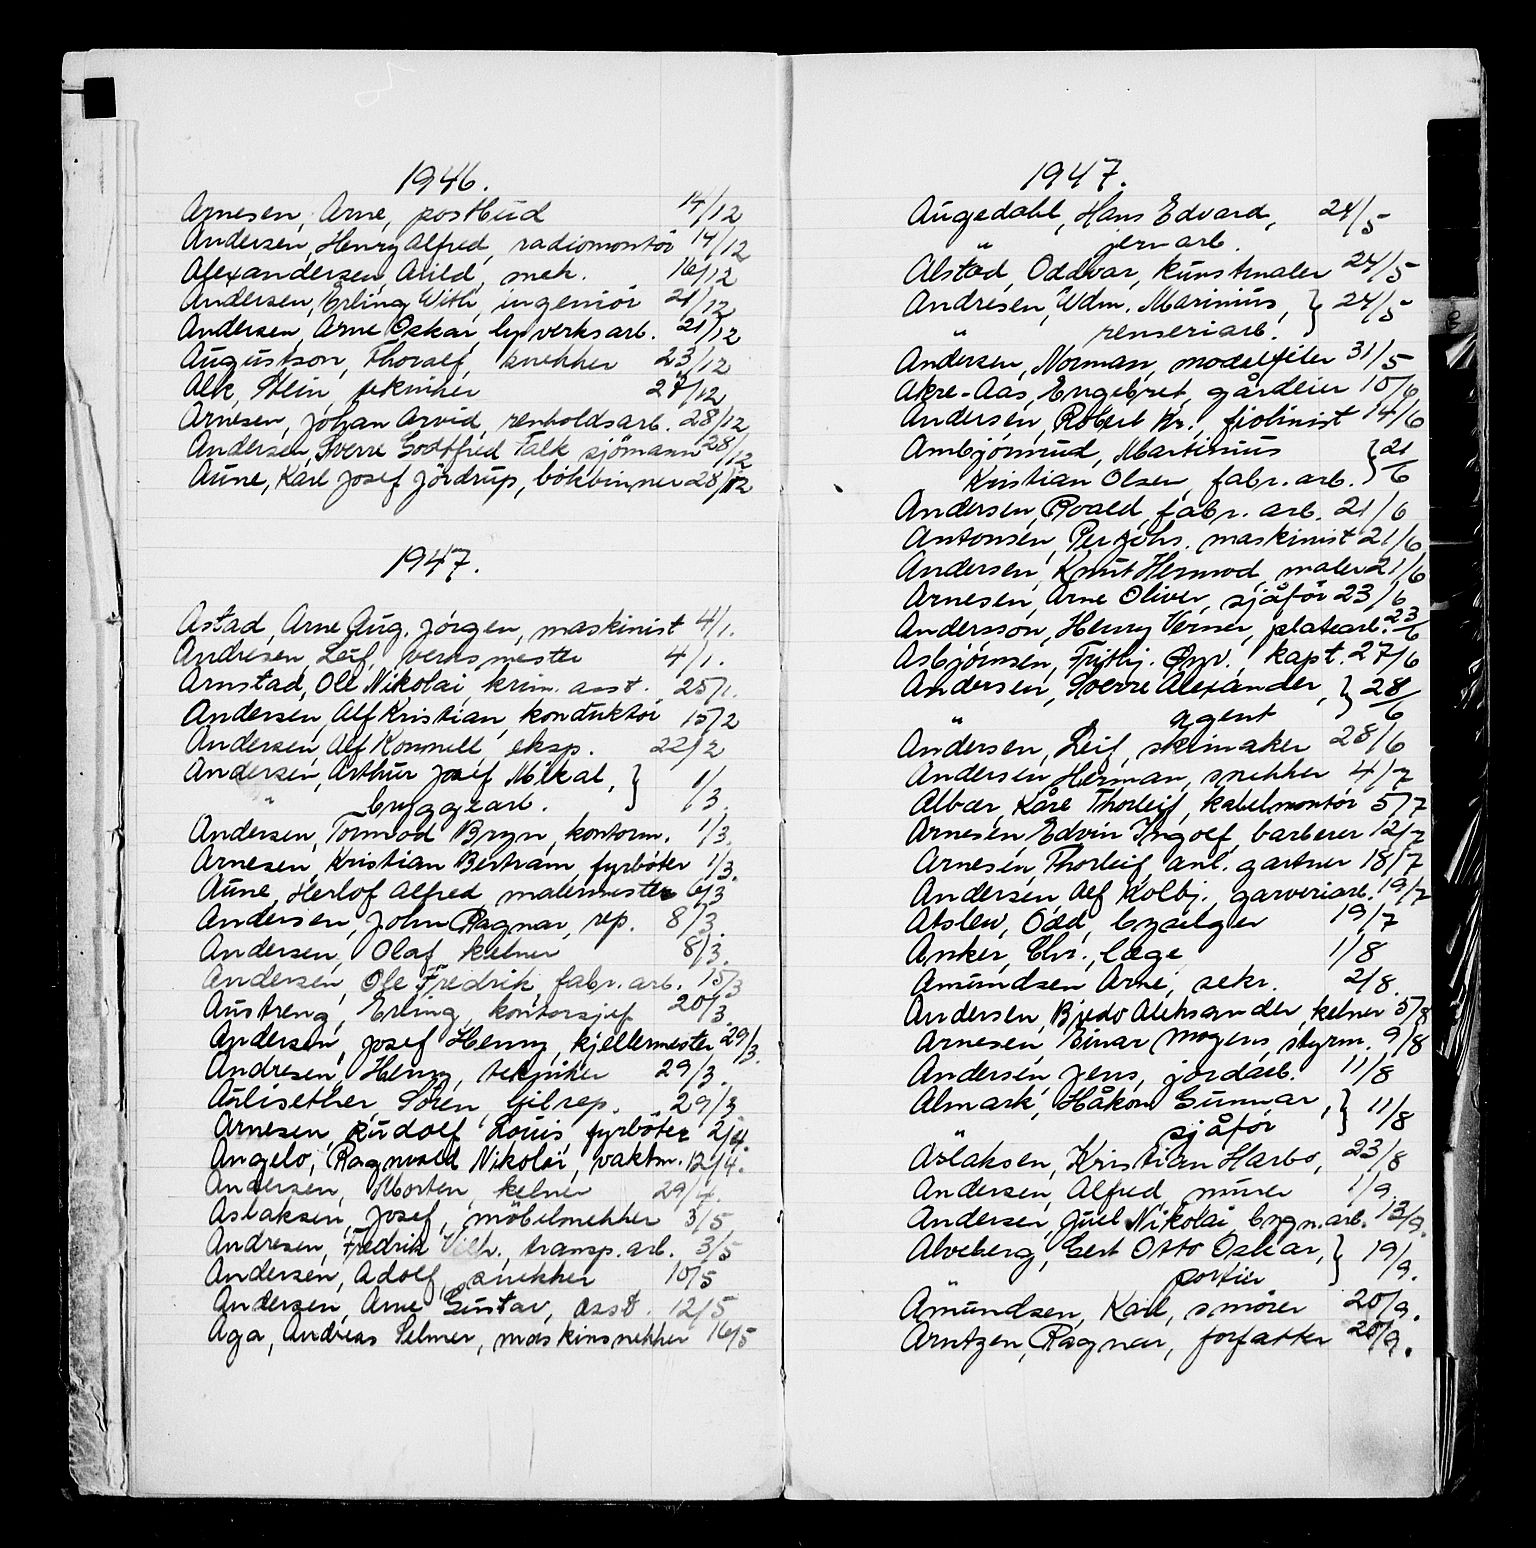 1946.
Arnesen, Arne, postbud 14/12
Andersen, Henry Alfred, radiomontör 14/12
Alexandersen, Arild, mek. 16/12
Andersen, Erling With, ingeniör 21/12
Andersen, Arne Oskar, lysverksarb. 21/12
Augustson, Thoralf, snekker 23/12
Alk, Stein, tekniker 27/12
Arnesen, Johan Arvid, renholdsarb. 28/12
Andersen, Sverre Godtfred Falk sjömann 28/12
Aune, Karl Josef Jördrup, bokbinner 28/12
1947.
Astad, Arne Aug. Jörgen, maskinist 4/1.
Andresen, Leif, verksmester 4/1.
Arnstad, Ole Nikolai, krim. asst. 25/1.
Andersen, Alf Kristian, konduktör 15/2
Andersen, Alf Kornneli, eksp. 22/2
Andersen, Arthur Josef Mikal, } 1/3.
" byggearb.
Andersen, Tormod Bryn, kontorm. 1/3.
Arnesen, Kristian Bertram, fyrböter 1/3.
Aune, Herlof Alfred, malermester 6/3
Andersen, John Ragnar, rep. 8/3.
Andersen, Olaf, kelner 8/3.
Andersen, Ole Fredrik, fabr. arb. 15/3
Austreng, Erling, kontorsjef 20/3.
Andersen, Josef Henry, kjellermester 29/3.
Andresen, Henry, tekniker 29/3.
Aulisether, Sören, bilrep. 29/3
Arnesen, Rudolf Louis, fyrböter 2/4.
Angelo, Ragnvald Nikolai, vaktm. 12/4.
Andersen, Morten, kelner 29/4.
Aslaksen, Josef, möbelsnekker 3/5
Andresen, Fredrik Vilh., transp. arb. 3/5
Andersen, Adolf, snekker 10/5
Andersen, Arne Gustav, asst. 12/5
Aga, Andreas Selmer, maskinsnekker 16/5
1947.
Augedahl, Hans Edvard, 24/5
" jernarb.
Alstad, Oddvar, kunstmaler 24/5
Andresen, Wdm. Marinius, } 24/5
" renseriarb.
Andersen, Norman, modelfiler 31/5
Akre-Aas, Engebret, gårdeier 10/6
Andersen, Robert Kr., fiolinist 14/6
Arnbjörnrud, Martinius } 21/6
Kristian Olsen, fabr. arb.
Andersen, Roald, fabr. arb. 21/6
Antonsen, Per Johs. maskinist 21/6
Andersen, Knut Hermod, maler 21/6
Arnesen, Arne Oliver, sjåför 23/6
Andersson, Henry Verner, platearb. 23/6
Asbjörnsen, Fritbj. Öyv., kapt. 27/6
Andersen, Sverre Alexander, } 28/6
" agent
Andersen, Leif, skimaker 28/6
Andersen, Herman, snekker 4/7
Albær, Kåre Thorleif, kabelmontör 5/7
Arnesen, Edvin Ingolf, barberer 12/7
Arnesen, Thorleif, anl. gartner 18/7
Andersen, Alf Kolbj., garveriarb. 19/7
Atslew, Odd, byselger 19/7
Anker, Chr., læge 1/8
Amundsen Arne, sekr. 2/8.
Andersen, Bjedo Aleksander, kelner 5/8
Arnesen, Einar Mogens, styrm. 9/8
Andersen, Jens, jordarb. 11/8
Almark, Håkon Gunnar, } 11/8
sjåför
Aslaksen, Kristian Harbo, 23/8
Andersen, Alfred, murer 1/9.
Andersen, Juel Nikolai, bygn. arb. 13/9.
Alveberg, Gert Otto Oskar, } 19/9.
portier
Amundsen, Karl, smörer 20/9.
Arntzen, Ragnar, forfatter 20/9.